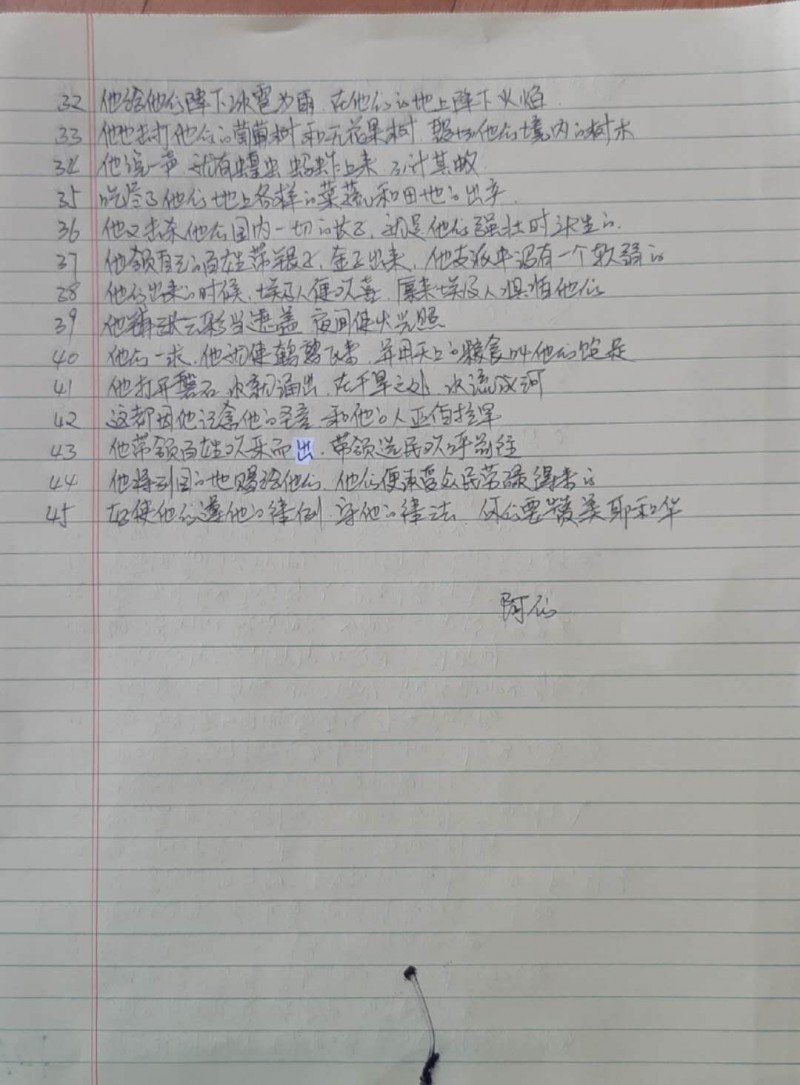 32 他给他们降下冰雹为雨 在他们的地上降下火焰
33 他也击打他们的葡萄树和无花果树 毁坏他们境内的树木
34 他说一声 就有蝗虫 蚂蚱上来 不计其数
35 吃尽了他们地上各样的菜蔬和田地的出产
36 他又击杀他们国内一切的长子，就是他们强壮时头生的
37 他领自己的百姓带银子，金子出来，他支派中没有一个软弱的
38 他们出来的时候，埃及人便欢喜，原来埃及人惧怕他们
39 他铺张云彩当遮盖 夜间使火光照
40 他们一求，他就使鹌鹑飞来，并用天上的粮食叫他们饱足
41 他打开磐石 水就涌出，在干旱之处 水流成河
42 这都因他记念他的圣言 和他的人亚伯拉罕
43 他带领百姓欢乐而出，带领选民欢呼前往
44 他将列国的地赐给他们，他们便承受众民劳碌得来的
45 好使他们遵他的律例 守他的律法 你们要赞美耶和华
阿们